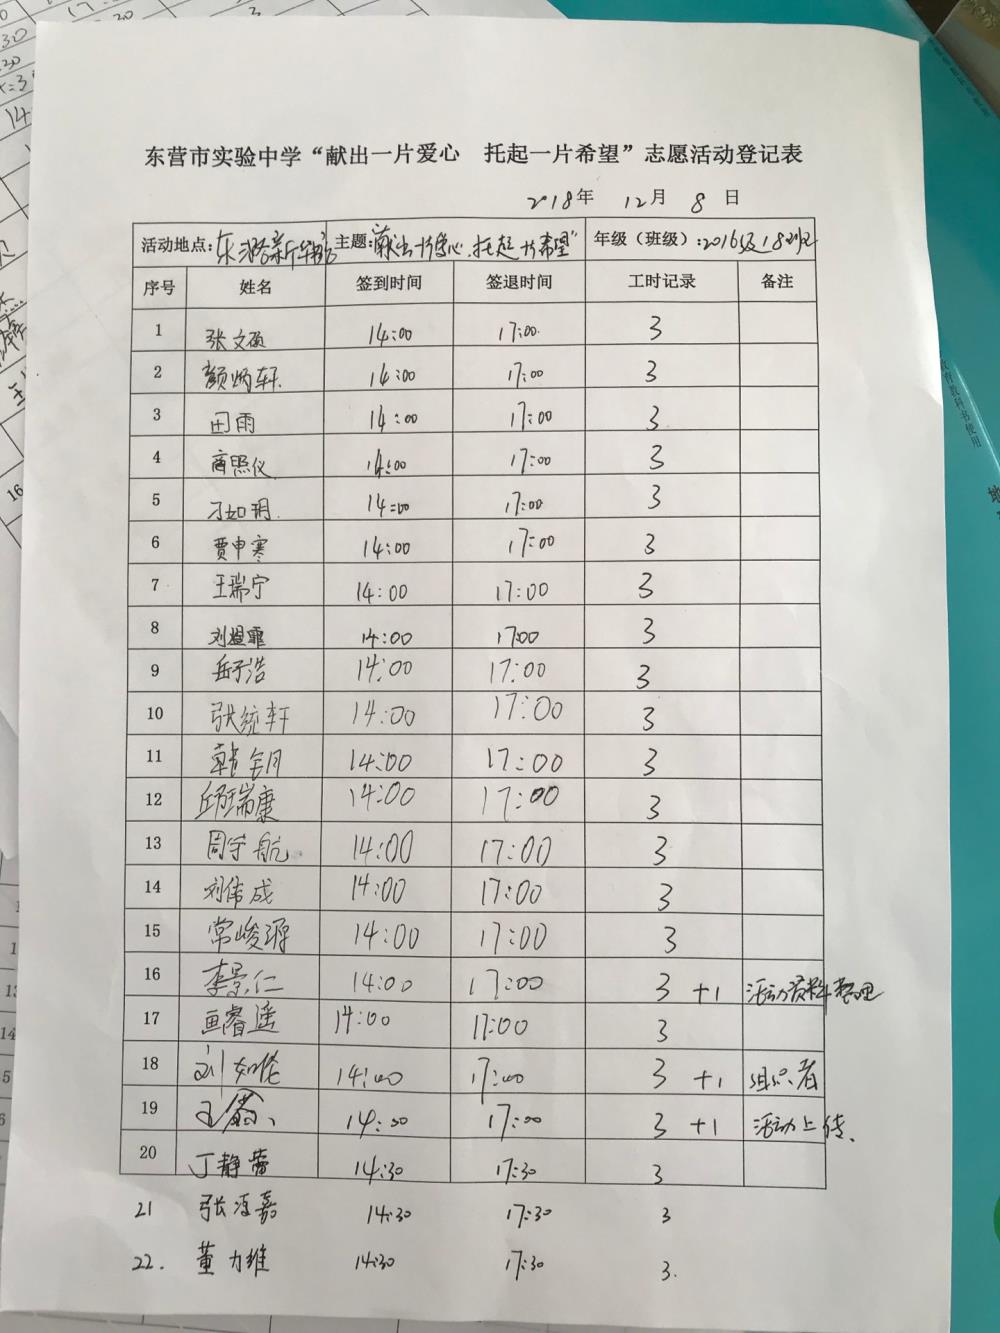 东营市实验中学“献出一片爱心 托起一片希望”志愿活动登记表
2018年 12月 8日
活动地点: 主题:“献出一片爱心.托起一片希望” 年级（班级）:2016级18班
序号 姓名 签到时间 签退时间 工时记录 备注
1 张文硕 14:00 17:00 3
2 颜炳轩 14:00 17:00 3
3 田雨 14:00 17:00 3
4 商照仪 14:00 17:00 3
5 刁如玥 14:00 17:00 3
6 贾申寒 14:00 17:00 3
7 王瑞宁 14:00 17:00 3
8 刘盟霏 14:00 17:00 3
9 岳子浩 14:00 17:00 3
10 张统轩 14:00 17:00 3
11 韩钥 14:00 17:00 3
12 邱瑞康 14:00 17:00 3
13 周宇航 14:00 17:00 3
14 刘伟成 14:00 17:00 3
15 常峻源 14:00 17:00 3
16 李景仁 14:00 17:00 3 +1 活动资料整理
17 画睿遥 14:00 17:00 3
18 刘如伦 14:00 17:00 3 +1 组织者
19 14:00 17:00 3 +1 活动上传、
20 丁静蕾 14:30 17:30 3
21 张洺嘉 14:30 17:30 3
22. 董力维 14:30 17:30 3.
教育教科书使用